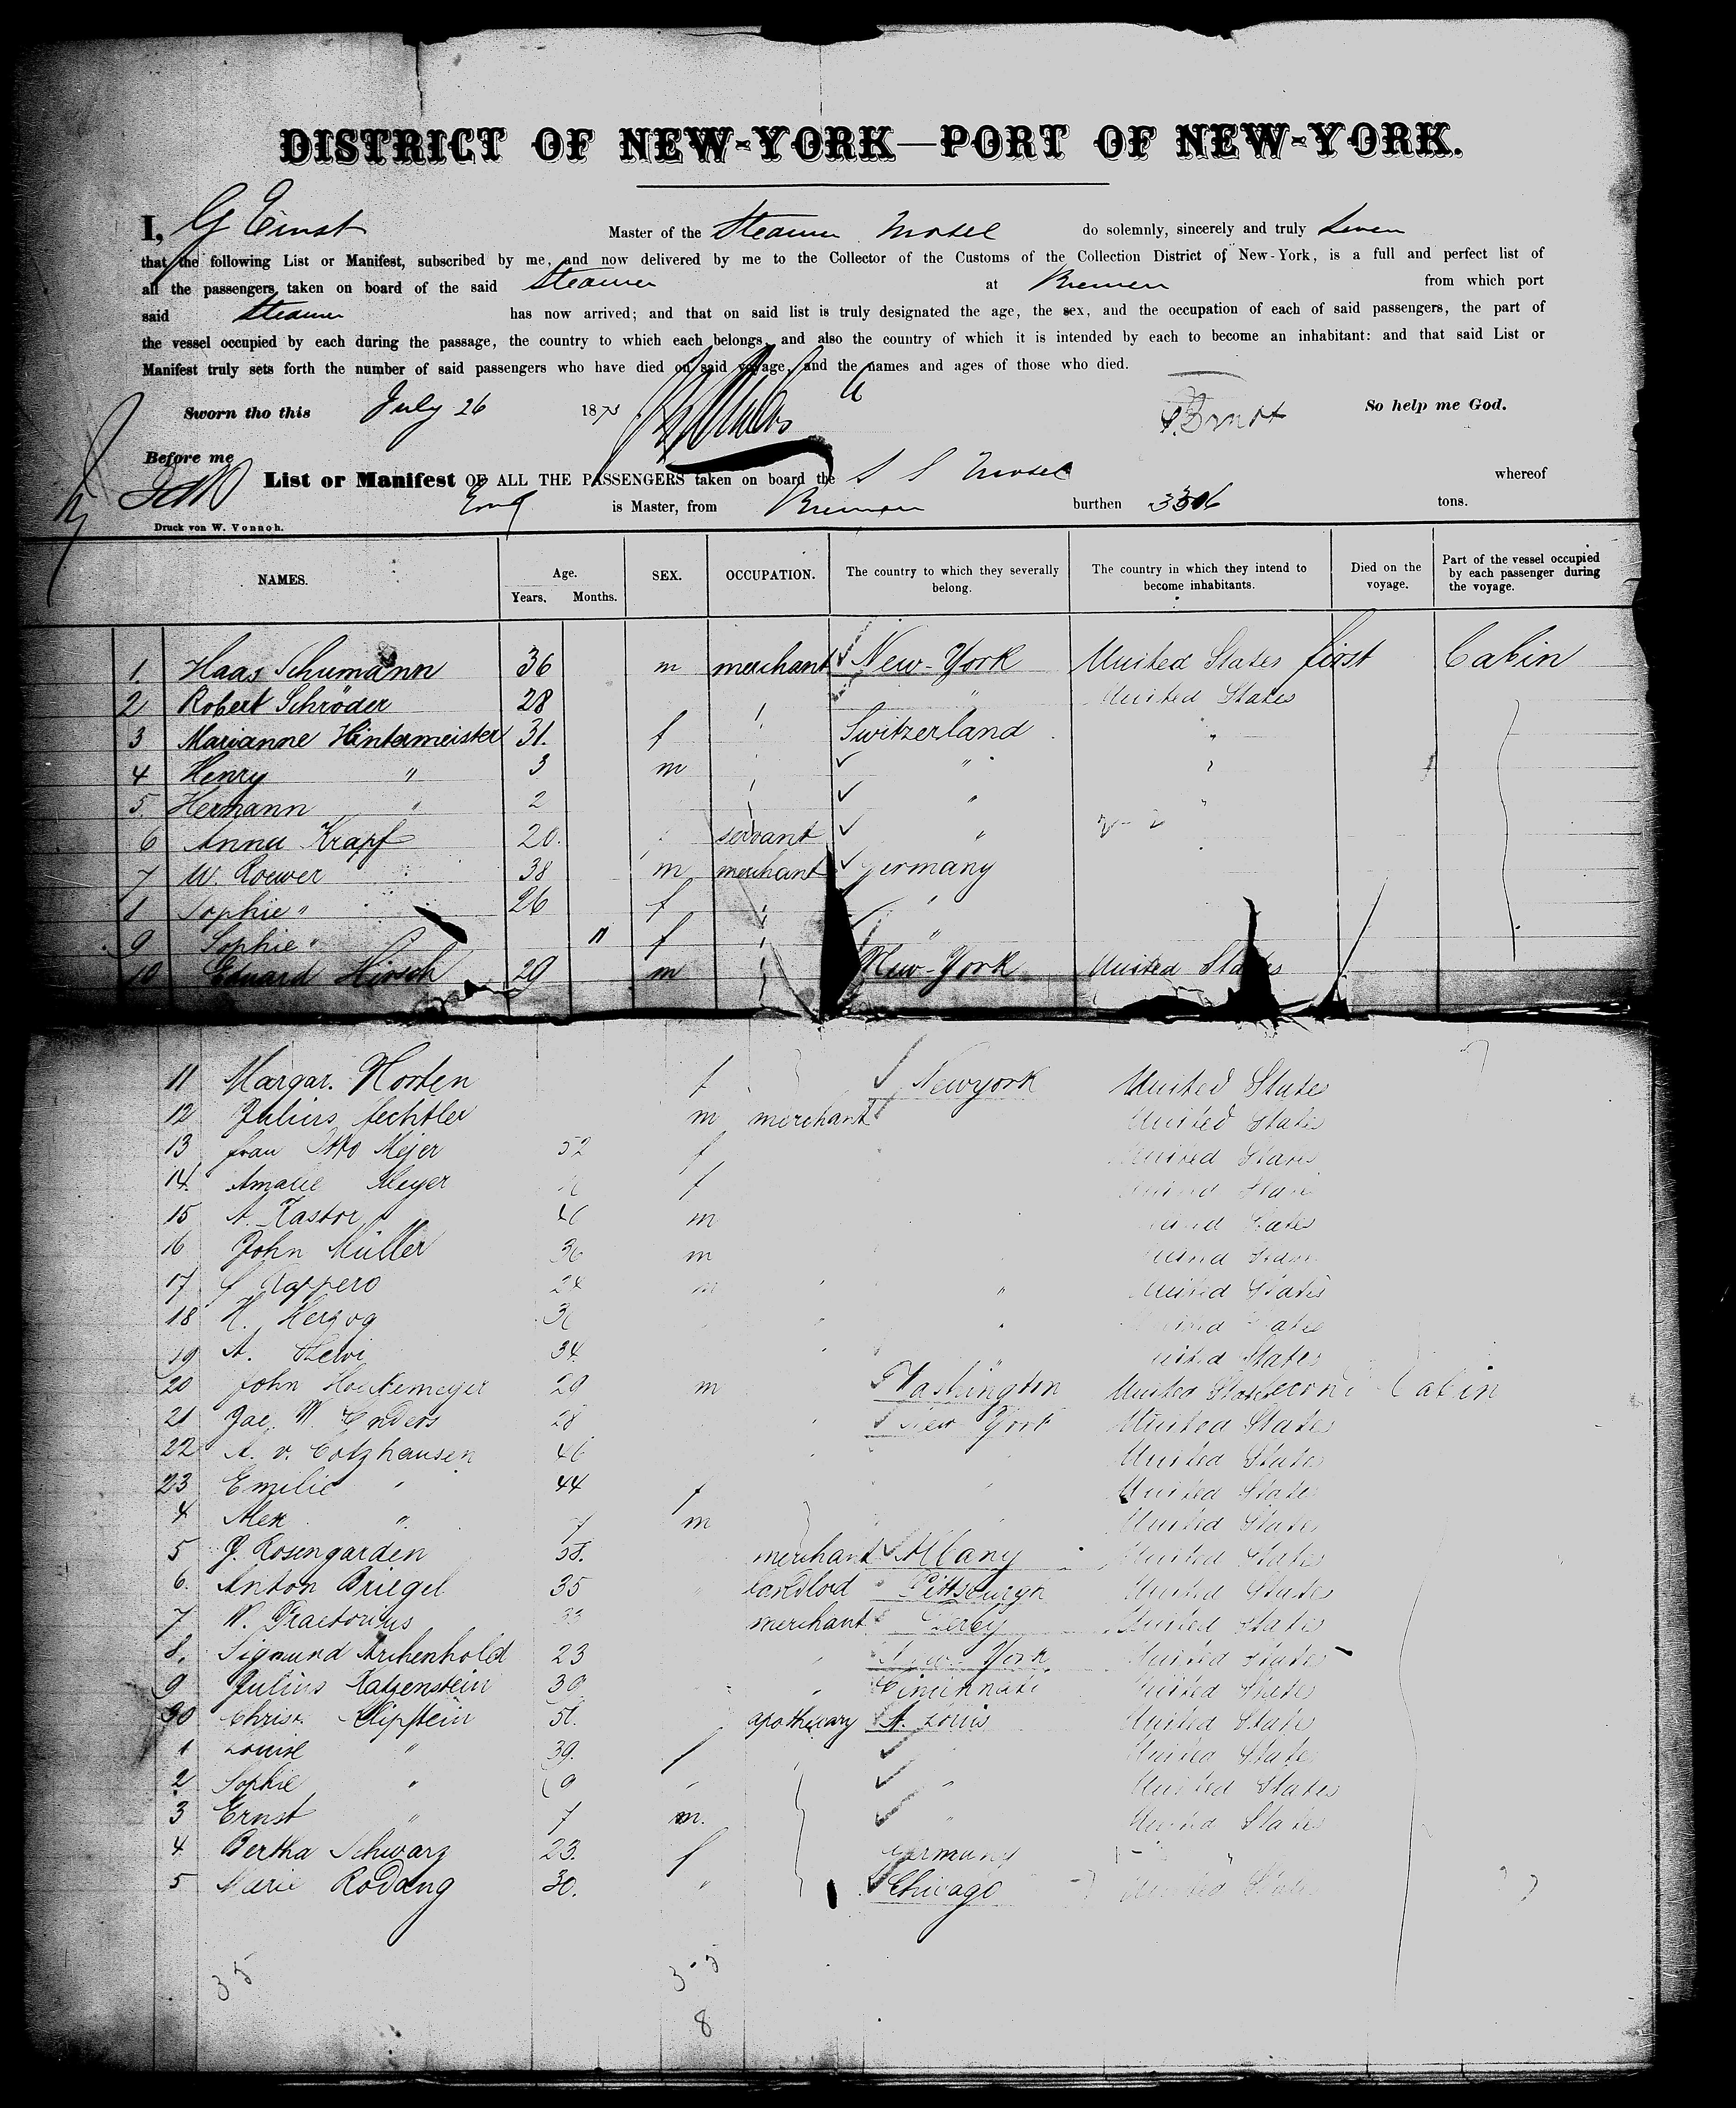 DISTRICT OF NEW-YORK—PORT OF NEW-YORK.
I, G Ernst Master of the Steamer Mosel do solemnly, sincerely and truly Swear
that the following List or Manifest, subscribed by me, and now delivered by me to the Collector of the Customs of the Collection District of New-York, is a full and perfect list of
all the passengers taken on board of the said Steamer at Bremen from which port
said Steamer has now arrived; and that on said list is truly designated the age, the sex, and the occupation of each of said passengers, the part of
the vessel occupied by each during the passage, the country to which each belongs, and also the country of which it is intended by each to become an inhabitant: and that said List or
Manifest truly sets forth the number of said passengers who have died on said voyage, and the names and ages of those who died.
Sworn tho this July 26 187 So help me God.
Before me
List or Manifest OF ALL THE PASSENGERS taken on board the S S Mosel whereof
is Master, from Bremen burthen tons.
Druck von W. Vonnoh.
NAMES. Age. Years. Months. SEX. OCCUPATION. The country to which they severally belong. The country in which they intend to become inhabitants. Died on the voyage. Part of the vessel occupied by each passenger during the voyage.
1. Haas Schumann 36 m merchant New-York United States first Cabin
2 Robert Schröder 28 " United States
3 Marianne Hintermeister 31. f Switzerland "
4 Henry " 3 m " "
5. Hermann " 2 " "
6 Anna Krapf 20. servant "
7 W. Roewer 38 m merchant Germany
8 Sophie " 26 f "
9 Sophie " 11 f "
10 Eduard Hirsch 29 m New-York United States
11 Margar. Horten f Newyork United States
12 Julius Fechtler m merchant United States
13 frau Otto Mejer 52 f United States
14. Amalie Meyer f United States
15 A. Kastor 46 m United States
16 John Müller 36 m United States
17 Kappero m " United States
18 H. Herzog United States
19 A. Lewi 34 United States
20 John Hockemeyer 29 m Washington United States Second Cabin
21 Jac. W. Enders 28 New York United States
22 A. v. Cotzhausen 46 United States
23 Emilie " 44 f United States
4 Alex " 7 m United States
5 J. Rosengarden 38. merchant Albany United States
6. Anton Briegel 35 landlord Pittsburgh United States
7 W. Praetorius 33 merchant Derby United States
8. Sigmund Archenhold 23 New-York United States
9 Julius Katzenstein 39 Cincinnati United States
30 Christ. Klipstein 51. apothecary St. Louis United States
1 Louise " 39. f United States
2 Sophie " 9 " United States
3 Ernst " 7 m. " United States
4 Bertha Schwarz 23. f Germany "
5 Marie Rodang 30. " Chicago United States
35 35
8